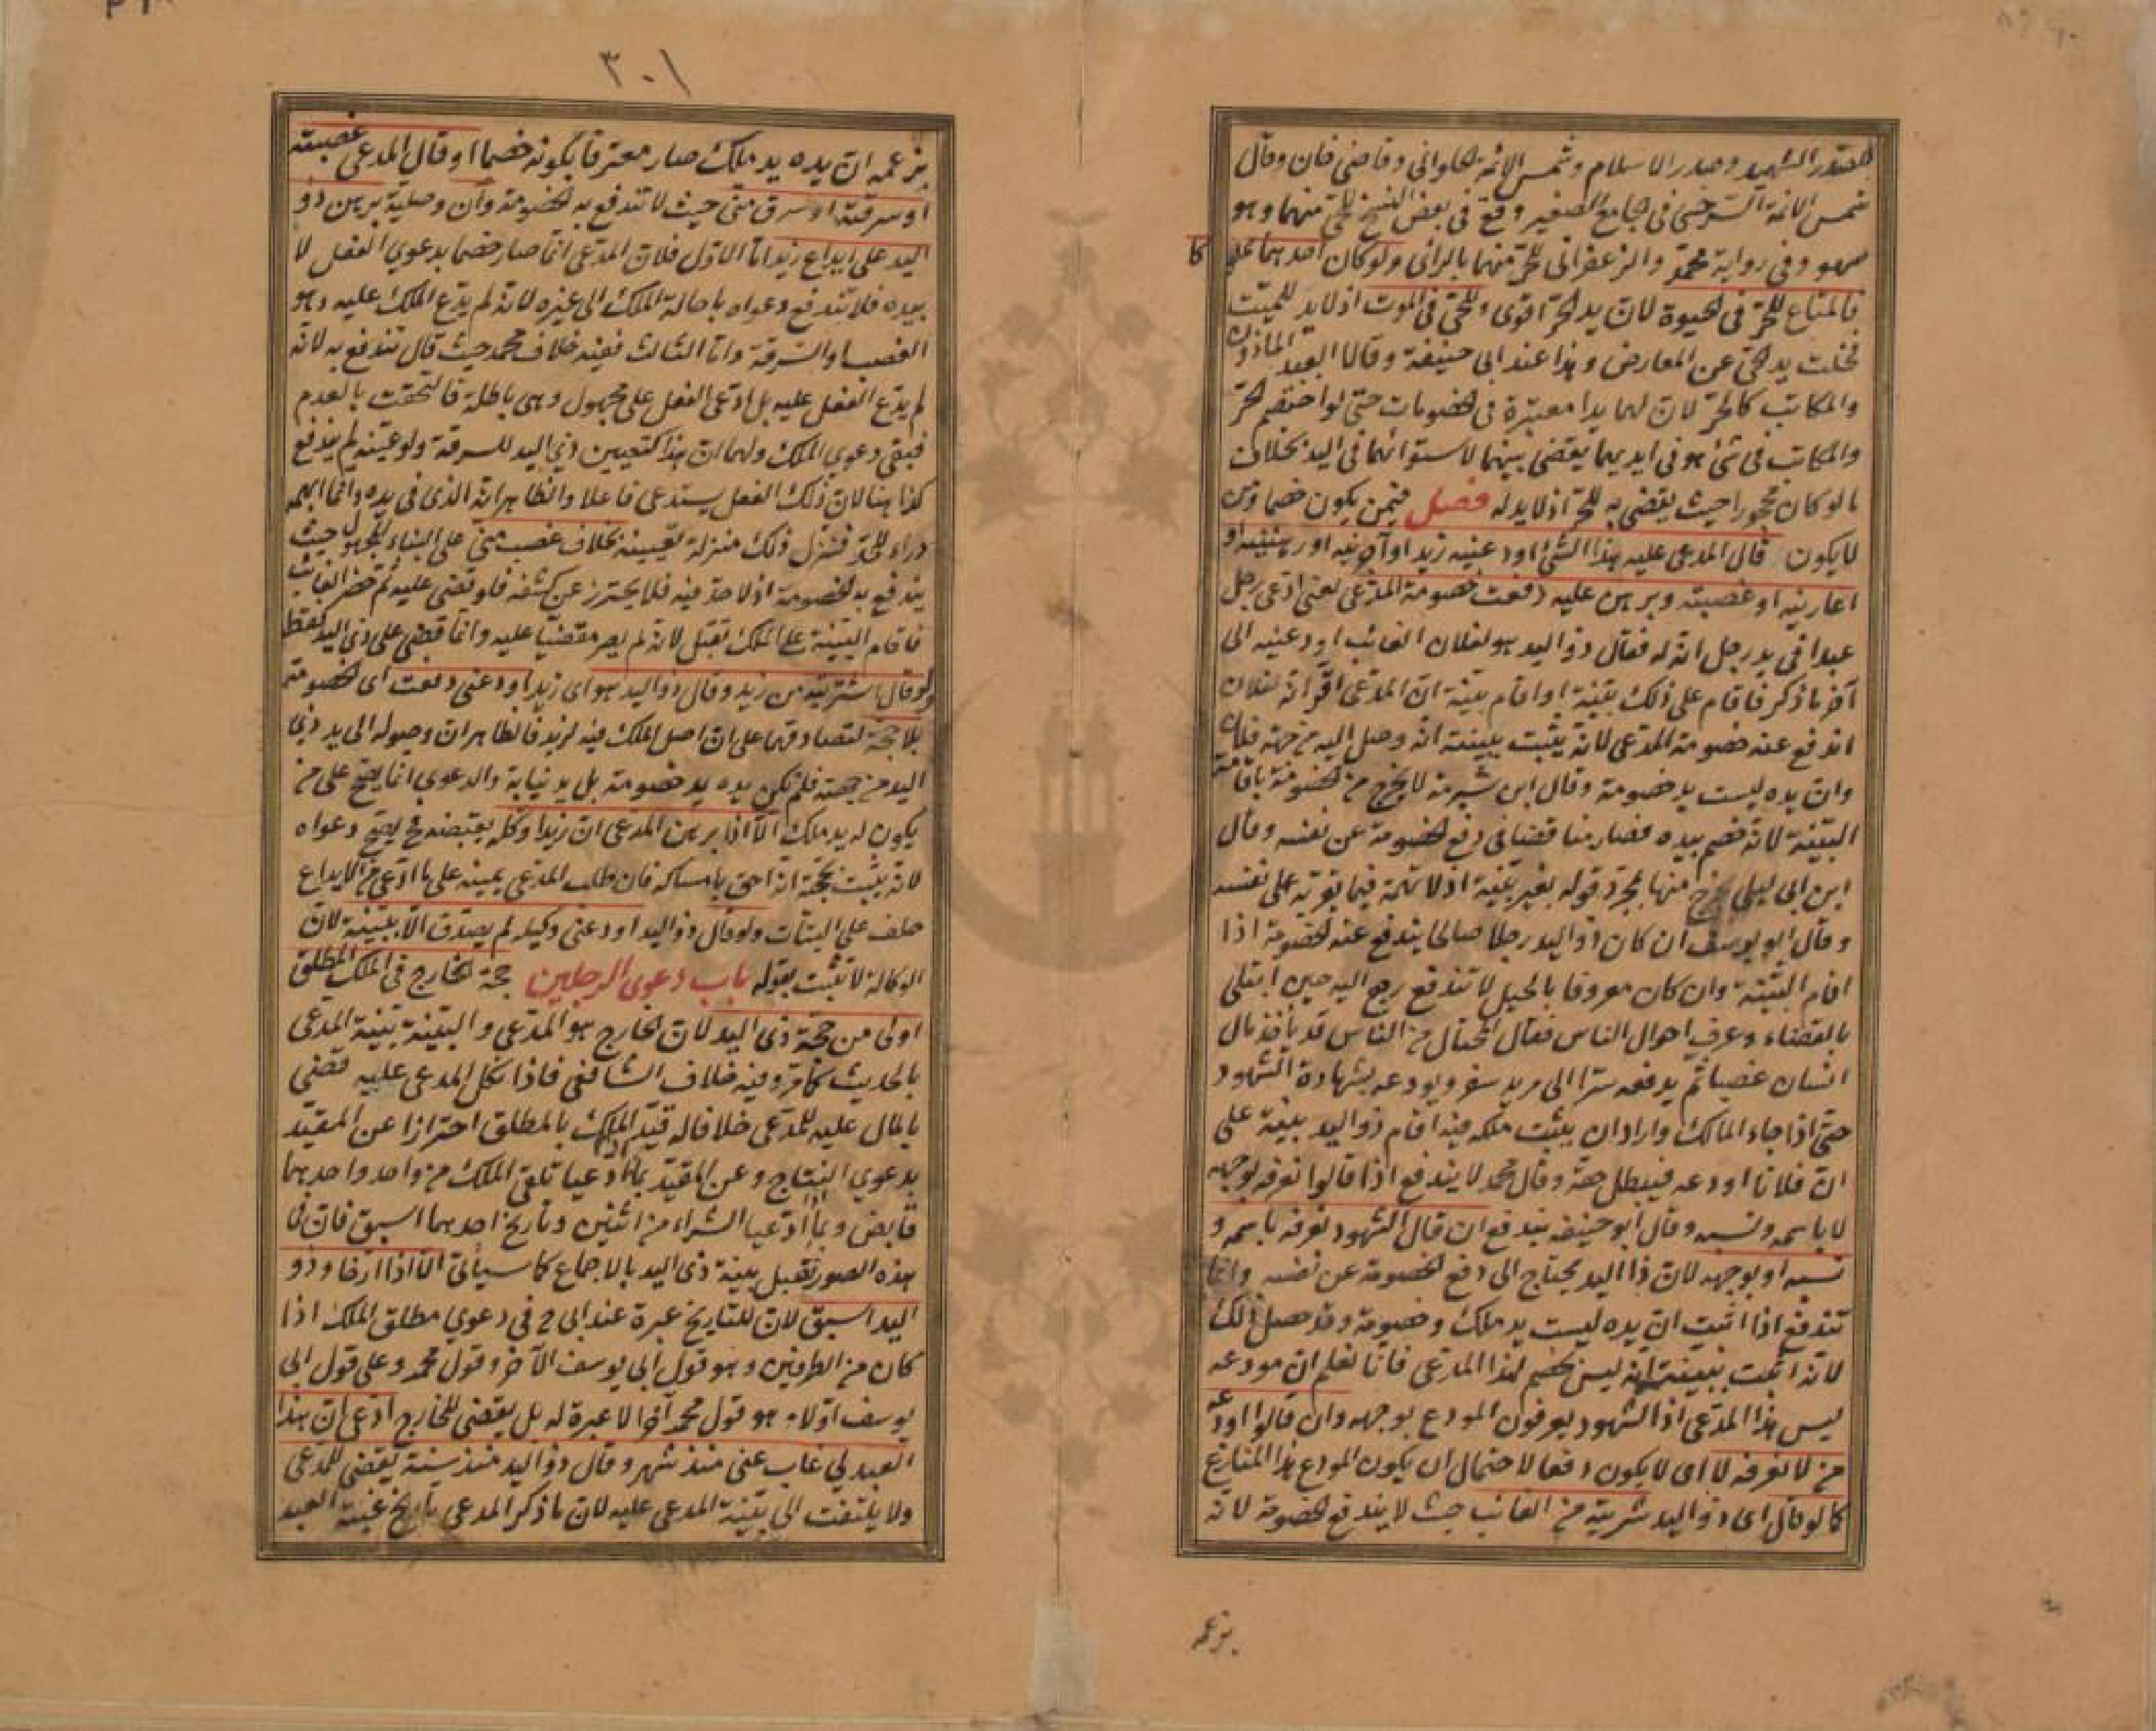 الصدر الشهيد وصدر الاسلام وشمس الائمة الحلواني وقاضي خان وقال
شمس الائمة السرخسي في الجامع الصغير وقع في بعض النسخ للحي منهما وهو
سهو وفي رواية محمد والزعفراني للحر منهما بالراء ولو كان احدهما مملوكا
فالمتاع للحر في الحيوة لان يد الحر اقوى وللحي في الموت اذ لا يد للميت
فخلت يد الحي عن المعارض وهذا عند ابي حنيفة وقالا العبد الماذون
والمكاتب كالحر لان لهما يدا معتبرة في الخصومات حتى لو اختصم الحر
والمكاتب في شئ هو في ايديهما يقضى بينهما لاستوائهما في اليد بخلاف
ما لو كان محجورا حيث يقضى به للحر اذ لا يد له فصل فيمن يكون خصما ومن
لا يكون قال المدعى عليه هذا الشئ اودعنيه زيد او آجرنيه او رهننيه او
اعارنيه او غصبته وبرهن عليه دفعت خصومة المدعي يعني ادعى رجل
عبدا في يد رجل انه له فقال ذو اليد هو لفلان الغائب اودعنيه الى
آخر ما ذكر فاقام على ذلك بينة او اقام بينة ان المدعي اقر انه لفلان
اندفع عنه خصومة المدعي لانه يثبت ببينته انه وصل اليه من جهة فلان
وان يده ليست يد خصومة وقال ابن شبرمة لا يخرج من الخصومة باقامة
البينة لانه خصم بيده فصار مناقضا في دفع الخصومة عن نفسه وقال
ابن ابي ليلى يخرج منها بمجرد قوله بغير بينة اذ لا تهمة فيما يقر به على نفسه
وقال ابو يوسف ان كان ذو اليد رجلا صالحا يندفع عنه الخصومة اذا
اقام البينة وان كان معروفا بالحيل لا تندفع رجع اليه حين ابتلي
بالقضاء وعرف احوال الناس فقال المحتال من الناس قد ياخذ مال
انسان غصبا ثم يدفعه سترا الى مريد سفر ويودعه بشهادة الشهود
حتى اذا جاء المالك واراد ان يثبت ملكه فيه اقام ذو اليد بينة على
ان فلانا اودعه فيبطل حقه وقال محمد لا يندفع اذا قالوا نعرفه بوجهه
لا باسمه ونسبه وقال ابو حنيفة يندفع ان قال الشهود نعرفه باسمه و
نسبه او بوجهه لان ذا اليد يحتاج الى دفع الخصومة عن نفسه وانما
تندفع اذا اثبت ان يده ليست يد ملك وخصومة وقد حصل ذلك
لانه اثبت ببينته انه ليس بخصم لهذا المدعي فانا نعلم ان مودعه
ليس هذا المدعي اذ الشهود يعرفون المودع بوجهه وان قالوا اودعه
من لا نعرفه لا اي لا يكون دفعا لاحتمال ان يكون المودع هذا المنازع
كما لو قال اي ذو اليد شريته من الغائب حيث لا يندفع الخصومة لانه
بزعمه
٣٠١
بزعمه ان يده يد ملك صار معترفا بكونه خصما او قال المدعي غصبته
او سرقته او سرق مني حيث لا تندفع به الخصومة وان وصلية برهن ذو
اليد على ايداع زيد اما الاول فلان المدعي انما صار خصما بدعوى الفعل لا
بيده فلا تندفع دعواه باحالة الملك الى غيره لانه لم يدع الملك عليه وهو
الغصب او السرقة واما الثالث ففيه خلاف محمد حيث قال تندفع به لانه
لم يدع الفعل عليه بل ادعى الفعل على مجهول وهي باطلة فالتحقت بالعدم
فبقي دعوى الملك ولهما ان هذا كتعيين ذي اليد للسرقة ولو عينه لم يندفع
كذا هنا لان ذلك الفعل يستدعي فاعلا والظاهر انه الذي في يده وانما ابهمه
دراء للحد فتنزل ذلك منزلة تعيينه بخلاف غصب مني على البناء للمجهول حيث
يندفع به الخصومة اذ لا حد فيه فلا يحترز عن كشفه فلو قضى عليه ثم حضر الغائب
فاقام البينة على الملك تقبل لانه لم يصر مقضيا عليه وانما قضي على ذي اليد فقط
ولو قال اشتريته من زيد وقال ذو اليد هو اي زيد اودعني دفعت اي الخصومة
بلا حجة لتصادقهما على ان اصل الملك فيه لزيد فالظاهر ان وصوله الى يد ذي
اليد من جهته فلم تكن يده يد خصومة بل يد نيابة والدعوى انما يصح على من
يكون له يد ملك الا اذا برهن المدعي ان زيدا وكله بقبضه فح يصح دعواه
لانه يثبت بحجته انه احق بامساكه فان طلب المدعي يمينه على ما ادعى من الايداع
حلف على البتات ولو قال ذو اليد اودعني وكيله لم يصدق الا ببينة لان
الوكالة لا تثبت بقوله باب دعوى الرجلين حجة الخارج في الملك المطلق
اولى من حجة ذي اليد لان الخارج هو المدعي والبينة بينة المدعي
بالحديث كما مر وفيه خلاف الشافعي فاذا نكل المدعى عليه قضي
بالمال عليه للمدعي خلافا له قيد الملك بالمطلق احترازا عن المقيد
بدعوى النتاج وعن المقيد بما اذا ادعيا تلقي الملك من واحد واحدهما
قابض وبما اذا ادعيا الشراء من اثنين وتاريخ احدهما اسبق فان في
هذه الصور تقبل بينة ذي اليد بالاجماع كما سيأتي الا اذا ارخا وذو
اليد اسبق لان للتاريخ عبرة عند ابي ح في دعوى مطلق الملك اذا
كان من الطرفين وهو قول ابي يوسف الآخر وقول محمد وعلى قول ابي
يوسف اولا وهو قول محمد آخرا لا عبرة له بل يقضى للخارج ادعى ان هذا
العبد لي غاب عني منذ شهر وقال ذو اليد منذ سنة يقضى للمدعي
ولا يلتفت الى بينة المدعى عليه لان ما ذكر المدعي تاريخ غيبة العبد